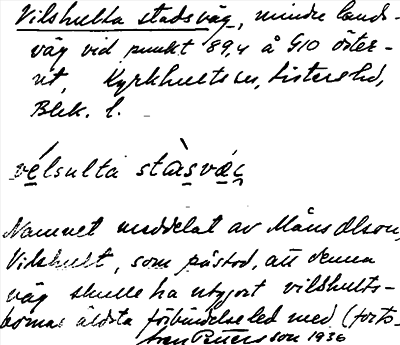 Vilshulta stadsväg, mindre lands-
väg vid punkt 89,4 å G10 öster-
ut, Kyrkhults sn, Listers hd,
Blek. l.
vélsulta stàsvág
Namnet meddelat av Måns Olson,
Vilshult, som påstod, att denna
väg skulle ha utgjort vilshults-
bornas äldsta förbindelseled med (forts.
Sven Petersson 1936